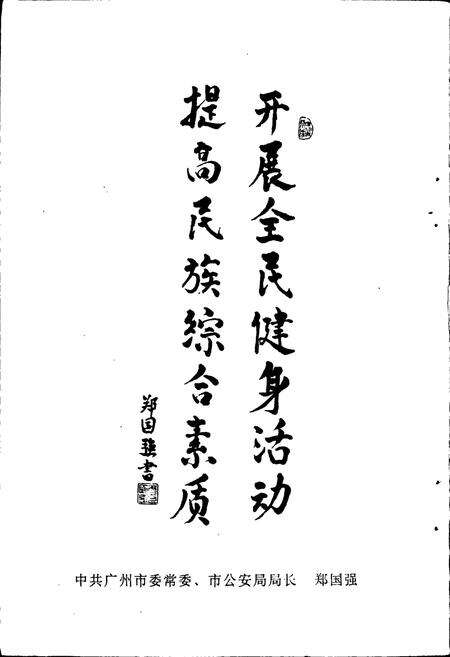 开展全民健身活动
提高民族综合素质
郑国强书
中共广州市委常委、市公安局局长 郑国强